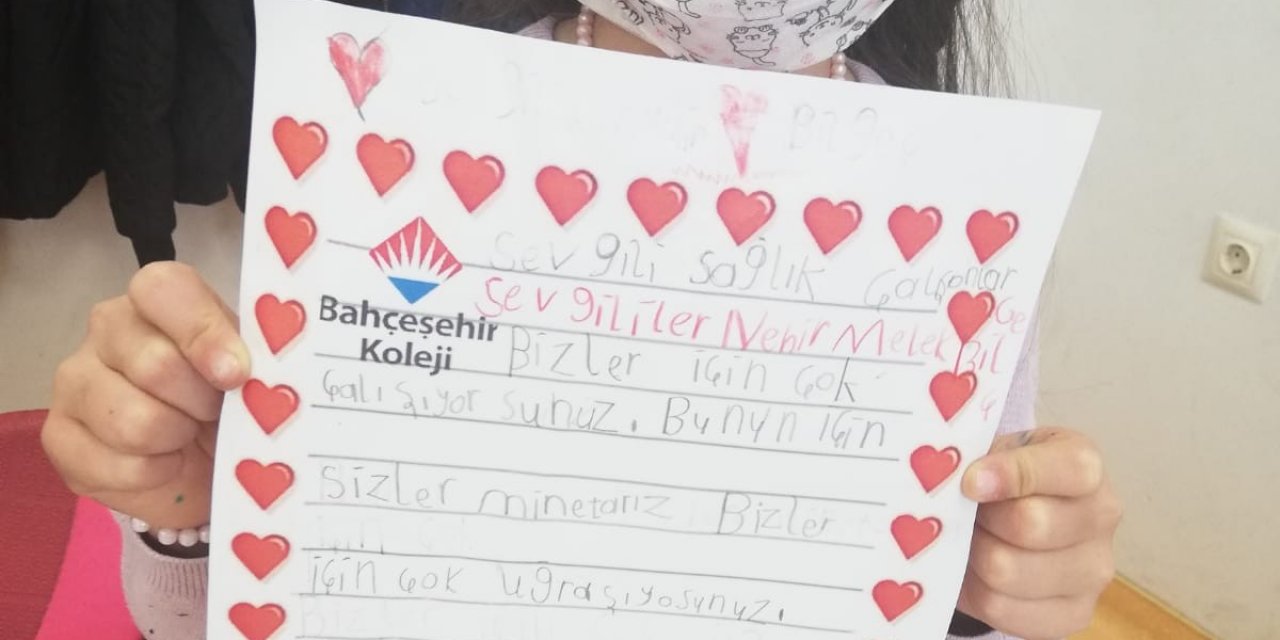 Sevgili sağlık Çalışonlar
Sevgililer Nehir Melek Bilge
Bahçeşehir
Koleji
Bizler için çok
çalışıyor sunuz. Bunun için
Sizler minetarız Bizler
için çok uğraşıyosunuz.